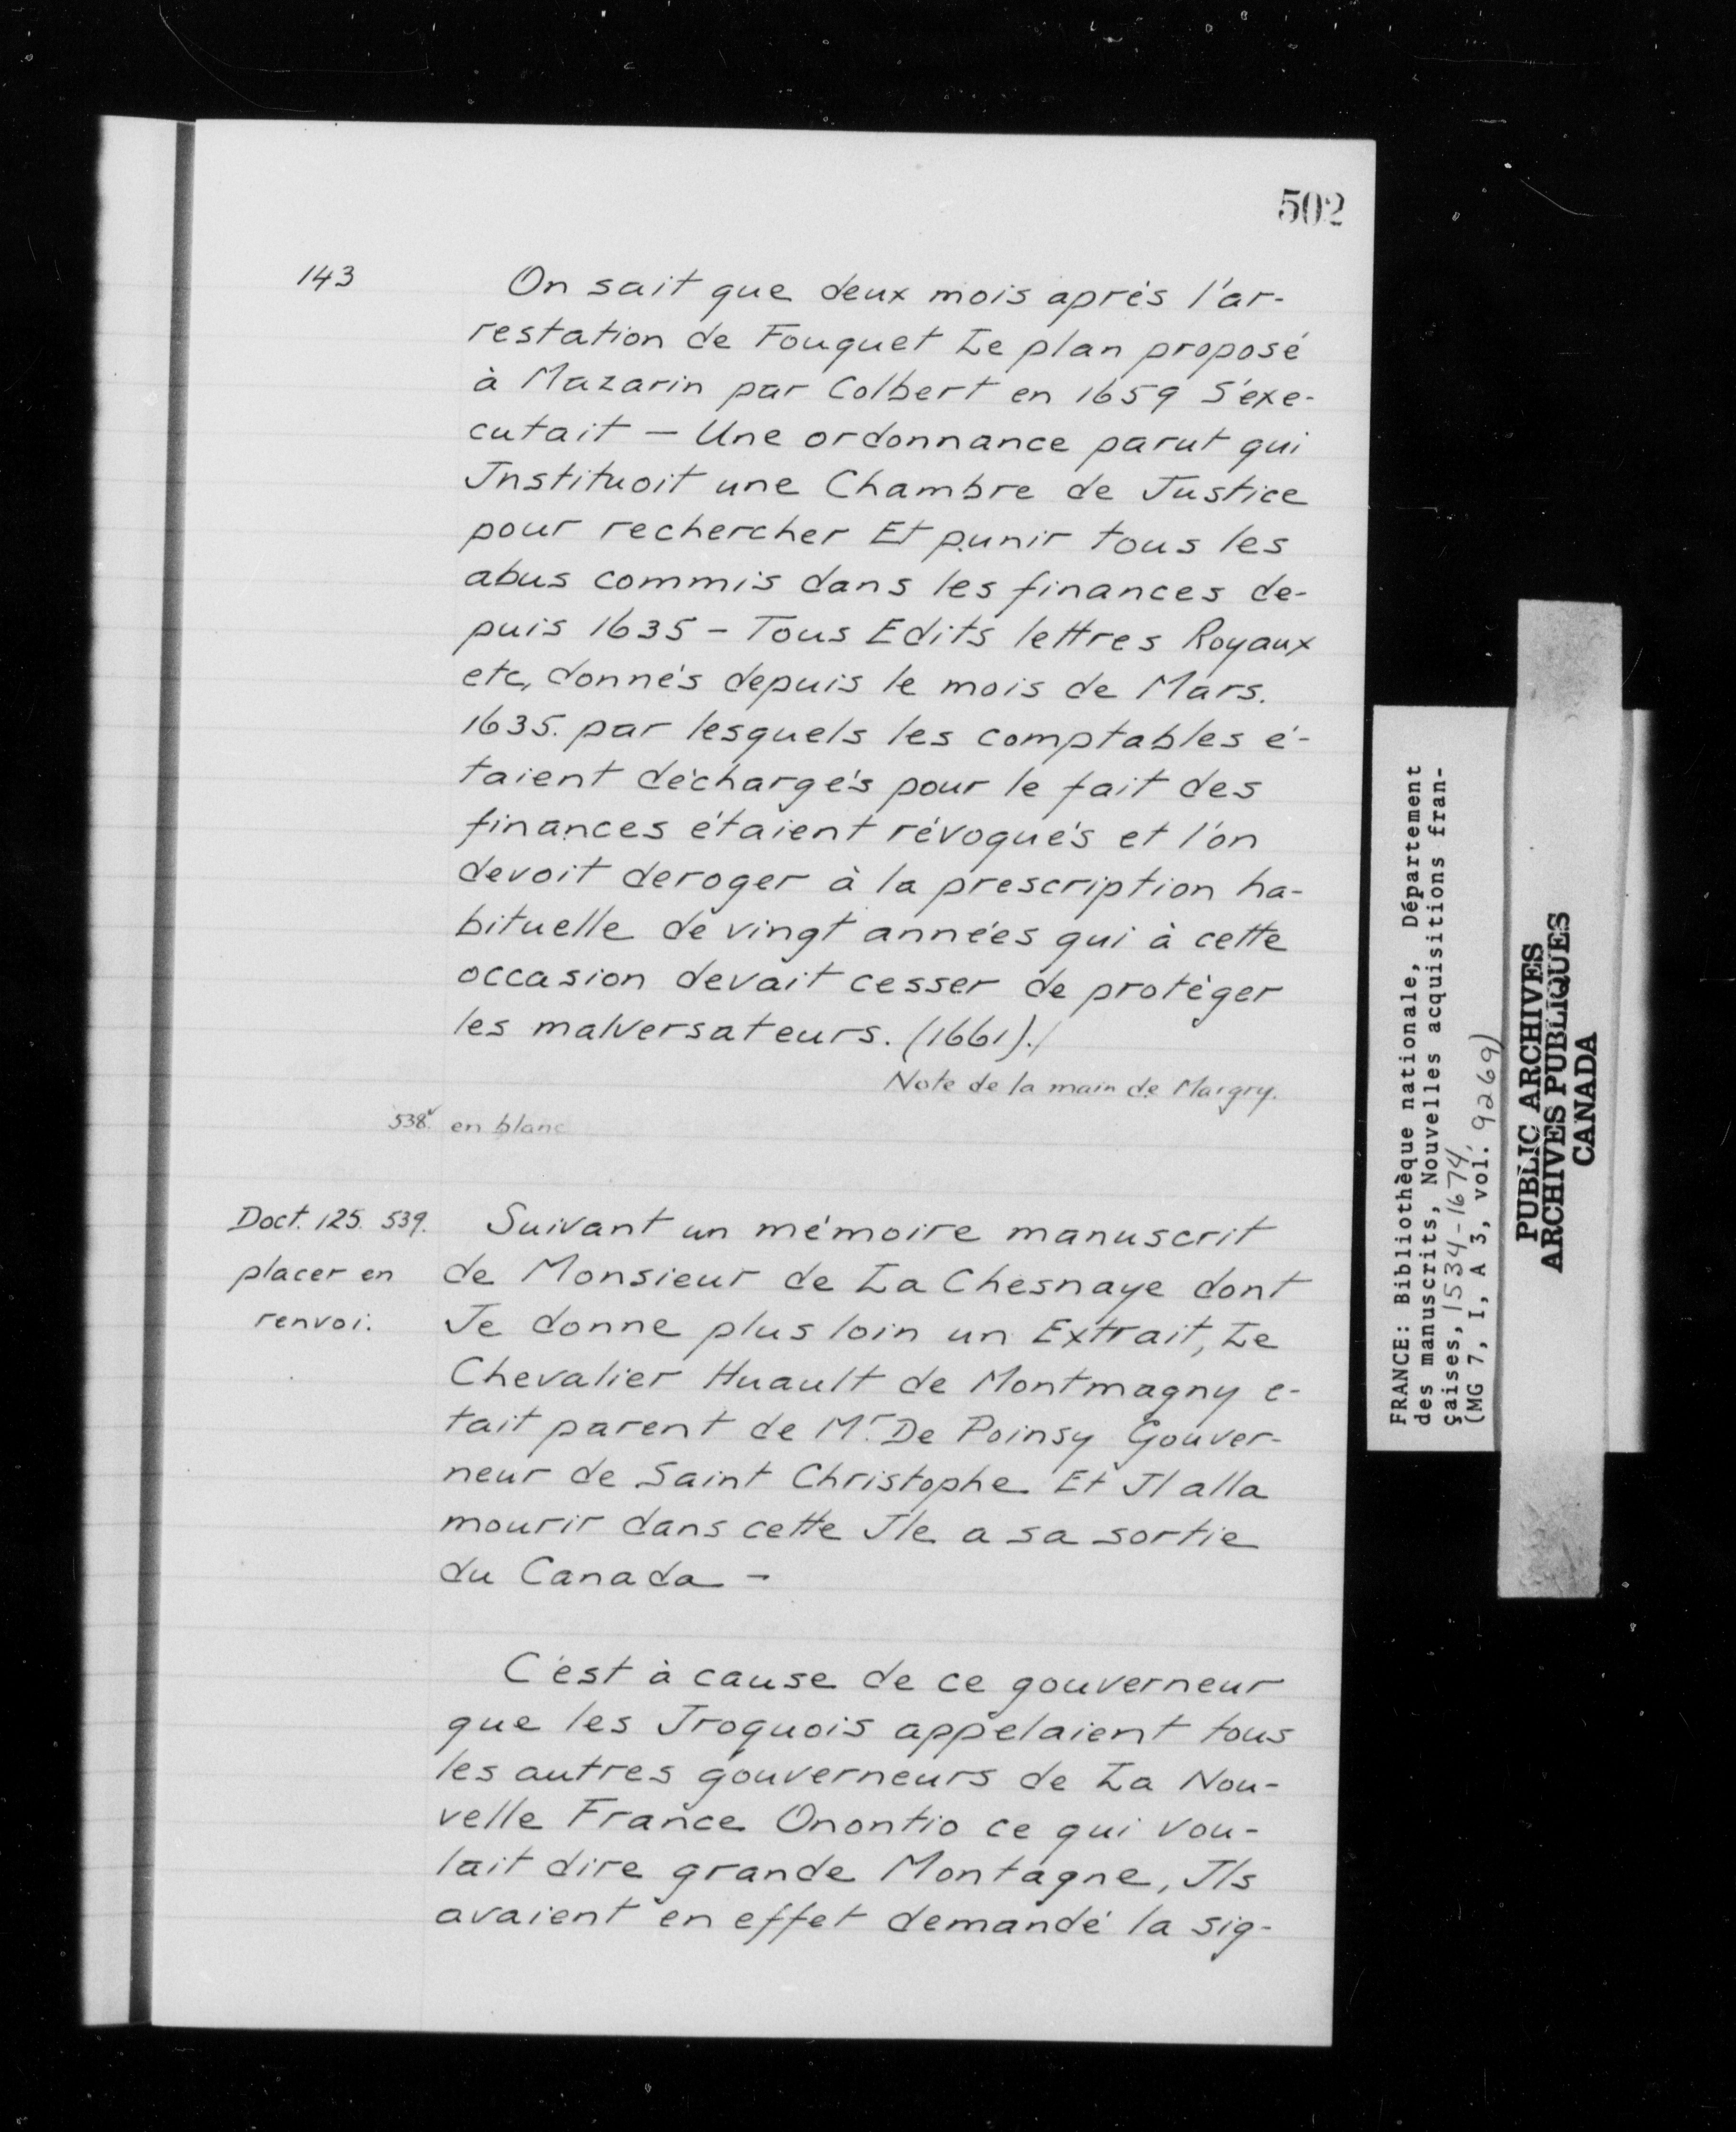 502
143
On sait que deux mois après l'ar-
restation de Fouquet Le plan proposé
à Mazarin par Colbert en 1659 S'exe-
cutait — Une ordonnance parut qui
Jnstituoit une Chambre de Justice
pour rechercher Et punir tous les
abus commis dans les finances de-
puis 1635 - Tous Edits lettres Royaux
etc, donnés depuis le mois de Mars.
1635. par lesquels les comptables é-
taient déchargés pour le fait des
finances étaient révoqués et l'on
devoit deroger à la prescription ha-
bituelle de vingt années qui à cette
occasion devait cesser de protéger
les malversateurs. (1661)./
Note de la main de Margry.
538v en blanc
Doct. 125. 539.
placer en
renvoi.
Suivant un mémoire manuscrit
de Monsieur de La Chesnaye dont
Je donne plus loin un Extrait, Le
Chevalier Huault de Montmagny e-
tait parent de Mr. De Poinsy Gouver-
neur de Saint Christophe Et Jl alla
mourir dans cette Jle a sa sortie
du Canada -
C'est à cause de ce gouverneur
que les Jroquois appelaient tous
les autres gouverneurs de La Nou-
velle France Onontio ce qui vou-
lait dire grande Montagne, Jls
avaient en effet demandé la sig-
FRANCE: Bibliothèque nationale, Département
des manuscrits, Nouvelles acquisitions fran-
çaises, 1534-1674,
(MG 7, I, A 3, vol. 9269)
PUBLIC ARCHIVES
ARCHIVES PUBLIQUES
CANADA